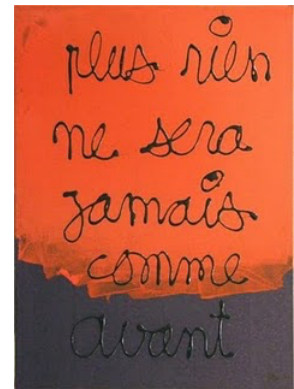 plus rien
ne sera
jamais
comme
avant